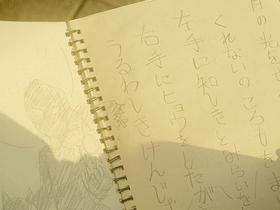 月の光を
くれないのころもをま
左手に知しきとみらいを
右手にヒョウをしたが
うるわしきけんじゃ